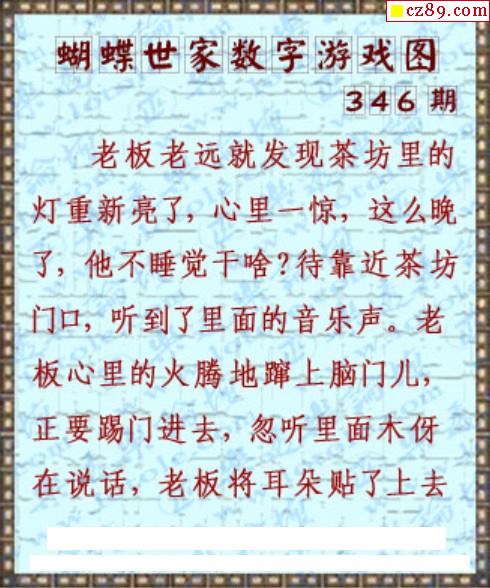 cz89.com
蝴蝶世家数字游戏图
346期
老板老远就发现茶坊里的
灯重新亮了,心里一惊,这么晚
了,他不睡觉干啥?待靠近茶坊
门口,听到了里面的音乐声。老
板心里的火腾地蹿上脑门儿,
正要踢门进去,忽听里面木伢
在说话,老板将耳朵贴了上去